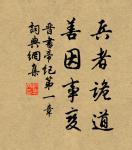 兵者詭道
善因事变
晉書帝紀第一章
詞典網集